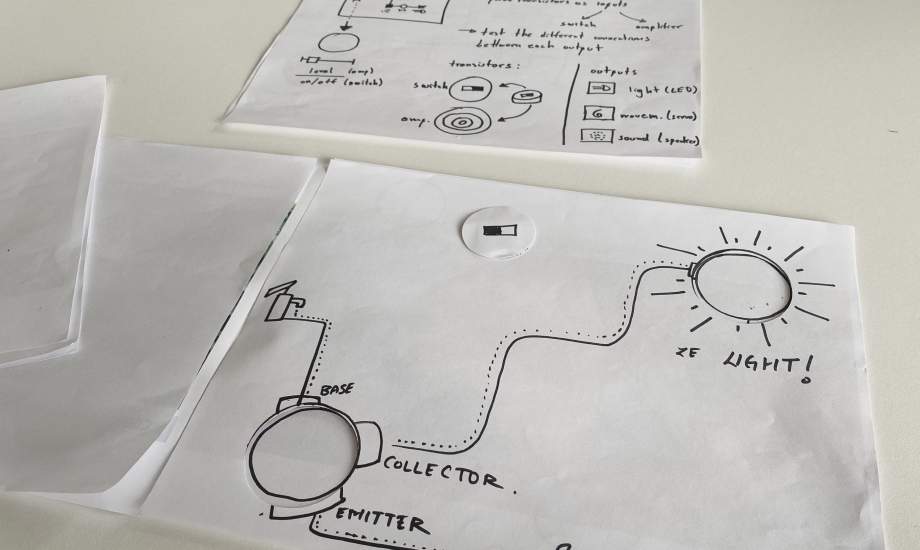 transistors as inputs
switch
amplifier
→ test the different connections
between each output
level (amp)
on/off (switch)
transistors:
switch
amp.
outputs
light (LED)
movem. (servo)
sound (speaker)
BASE
COLLECTOR.
EMITTER
ZE LIGHT!